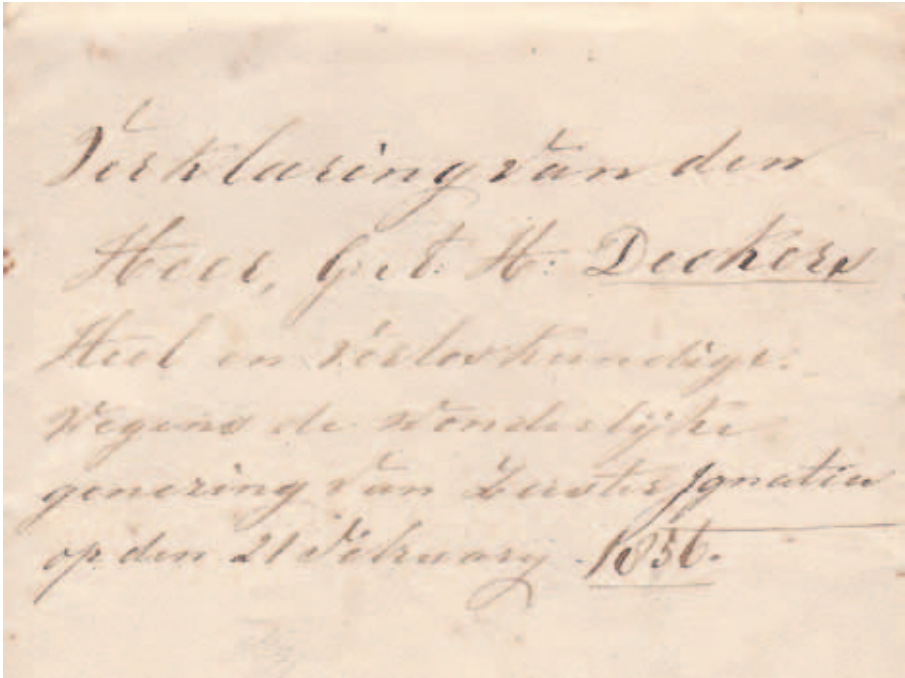 Verklaring van den
Heer, Get. H: Deckers
Heel en Verloskundige.
Wegens de Wonderlijke
genezing van Zuster Ignatia
op den 21 Februarij 1856.